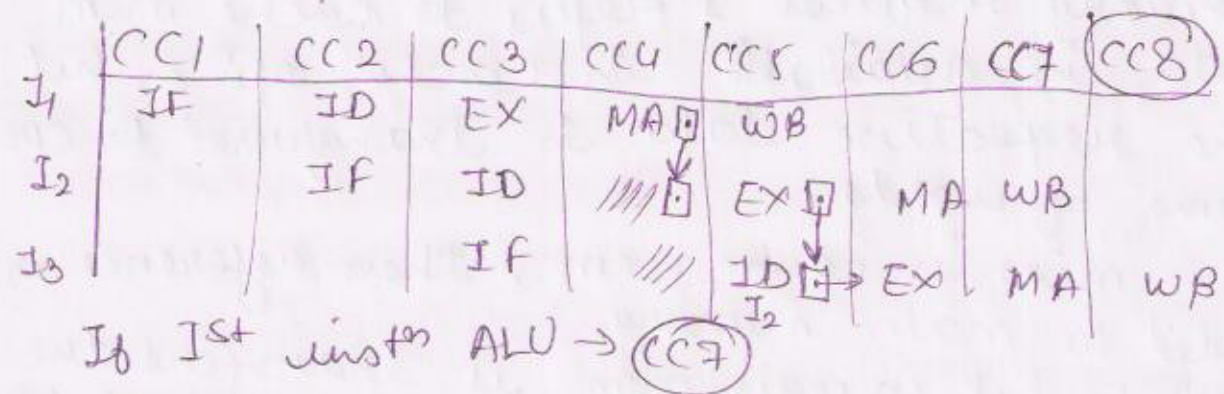 CC1 CC2 CC3 CC4 CC5 CC6 CC7 CC8
I1 IF ID EX MA WB
I2 IF ID EX MA WB
I3 IF ID EX MA WB
I2
If Ist instn ALU → CC7